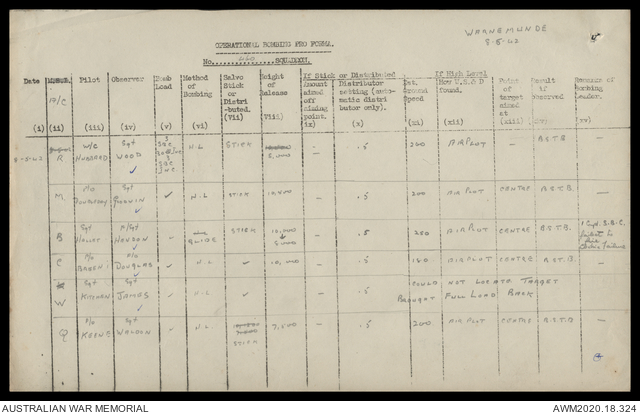 WARNEMUNDE
8-5-42
OPERATIONAL BOMBING PRO FORMA.
No. 460 SQUADRON.
Date Pilot Observer Bomb Load Method of Bombing Salvo Stick or Distri-buted. Height of Release If Stick or Distributed If High Level
A/C Amount aimed off aiming point. Distributor setting (auto-matic distri-butor only). Est. Ground Speed How U.S. & D found. Point of target aimed at Result if observed Remarks of Bombing Leader.
(i) (ii) (iii) (iv) (v) (vi) (vii) (viii) (ix) (x) (xi) (xii) (xiii)
8-5-42 R W/C HUBBARD Sgt WOOD H.L STICK 5,000 — .5 200 AIR PLOT — B.S.T.B
M. P/O Sgt GODWIN ✓ H.L STICK — .5 200 AIR PLOT CENTRE B.S.T.B.
B Sgt F/Sgt ✓ GLIDE STICK 10,000 ↓ 5,000 — .5 250 AIR PLOT CENTRE B.S.T.B. 1 S.B.C. failed to
C P/O P/O DOUGLAS ✓ H.L ✓ 10,000 — .5 180 AIR PLOT CENTRE B.S.T.B.
W Sgt KITCHEN Sgt JAMES ✓ H.L ✓ — .5 COULD NOT LOCATE TARGET
BROUGHT FULL LOAD BACK
Q P/O KEENE Sgt WALDON ✓ H.L STICK 7,500 — .5 200 AIR PLOT CENTRE B.S.T.B
AUSTRALIAN WAR MEMORIAL
AWM2020.18.324